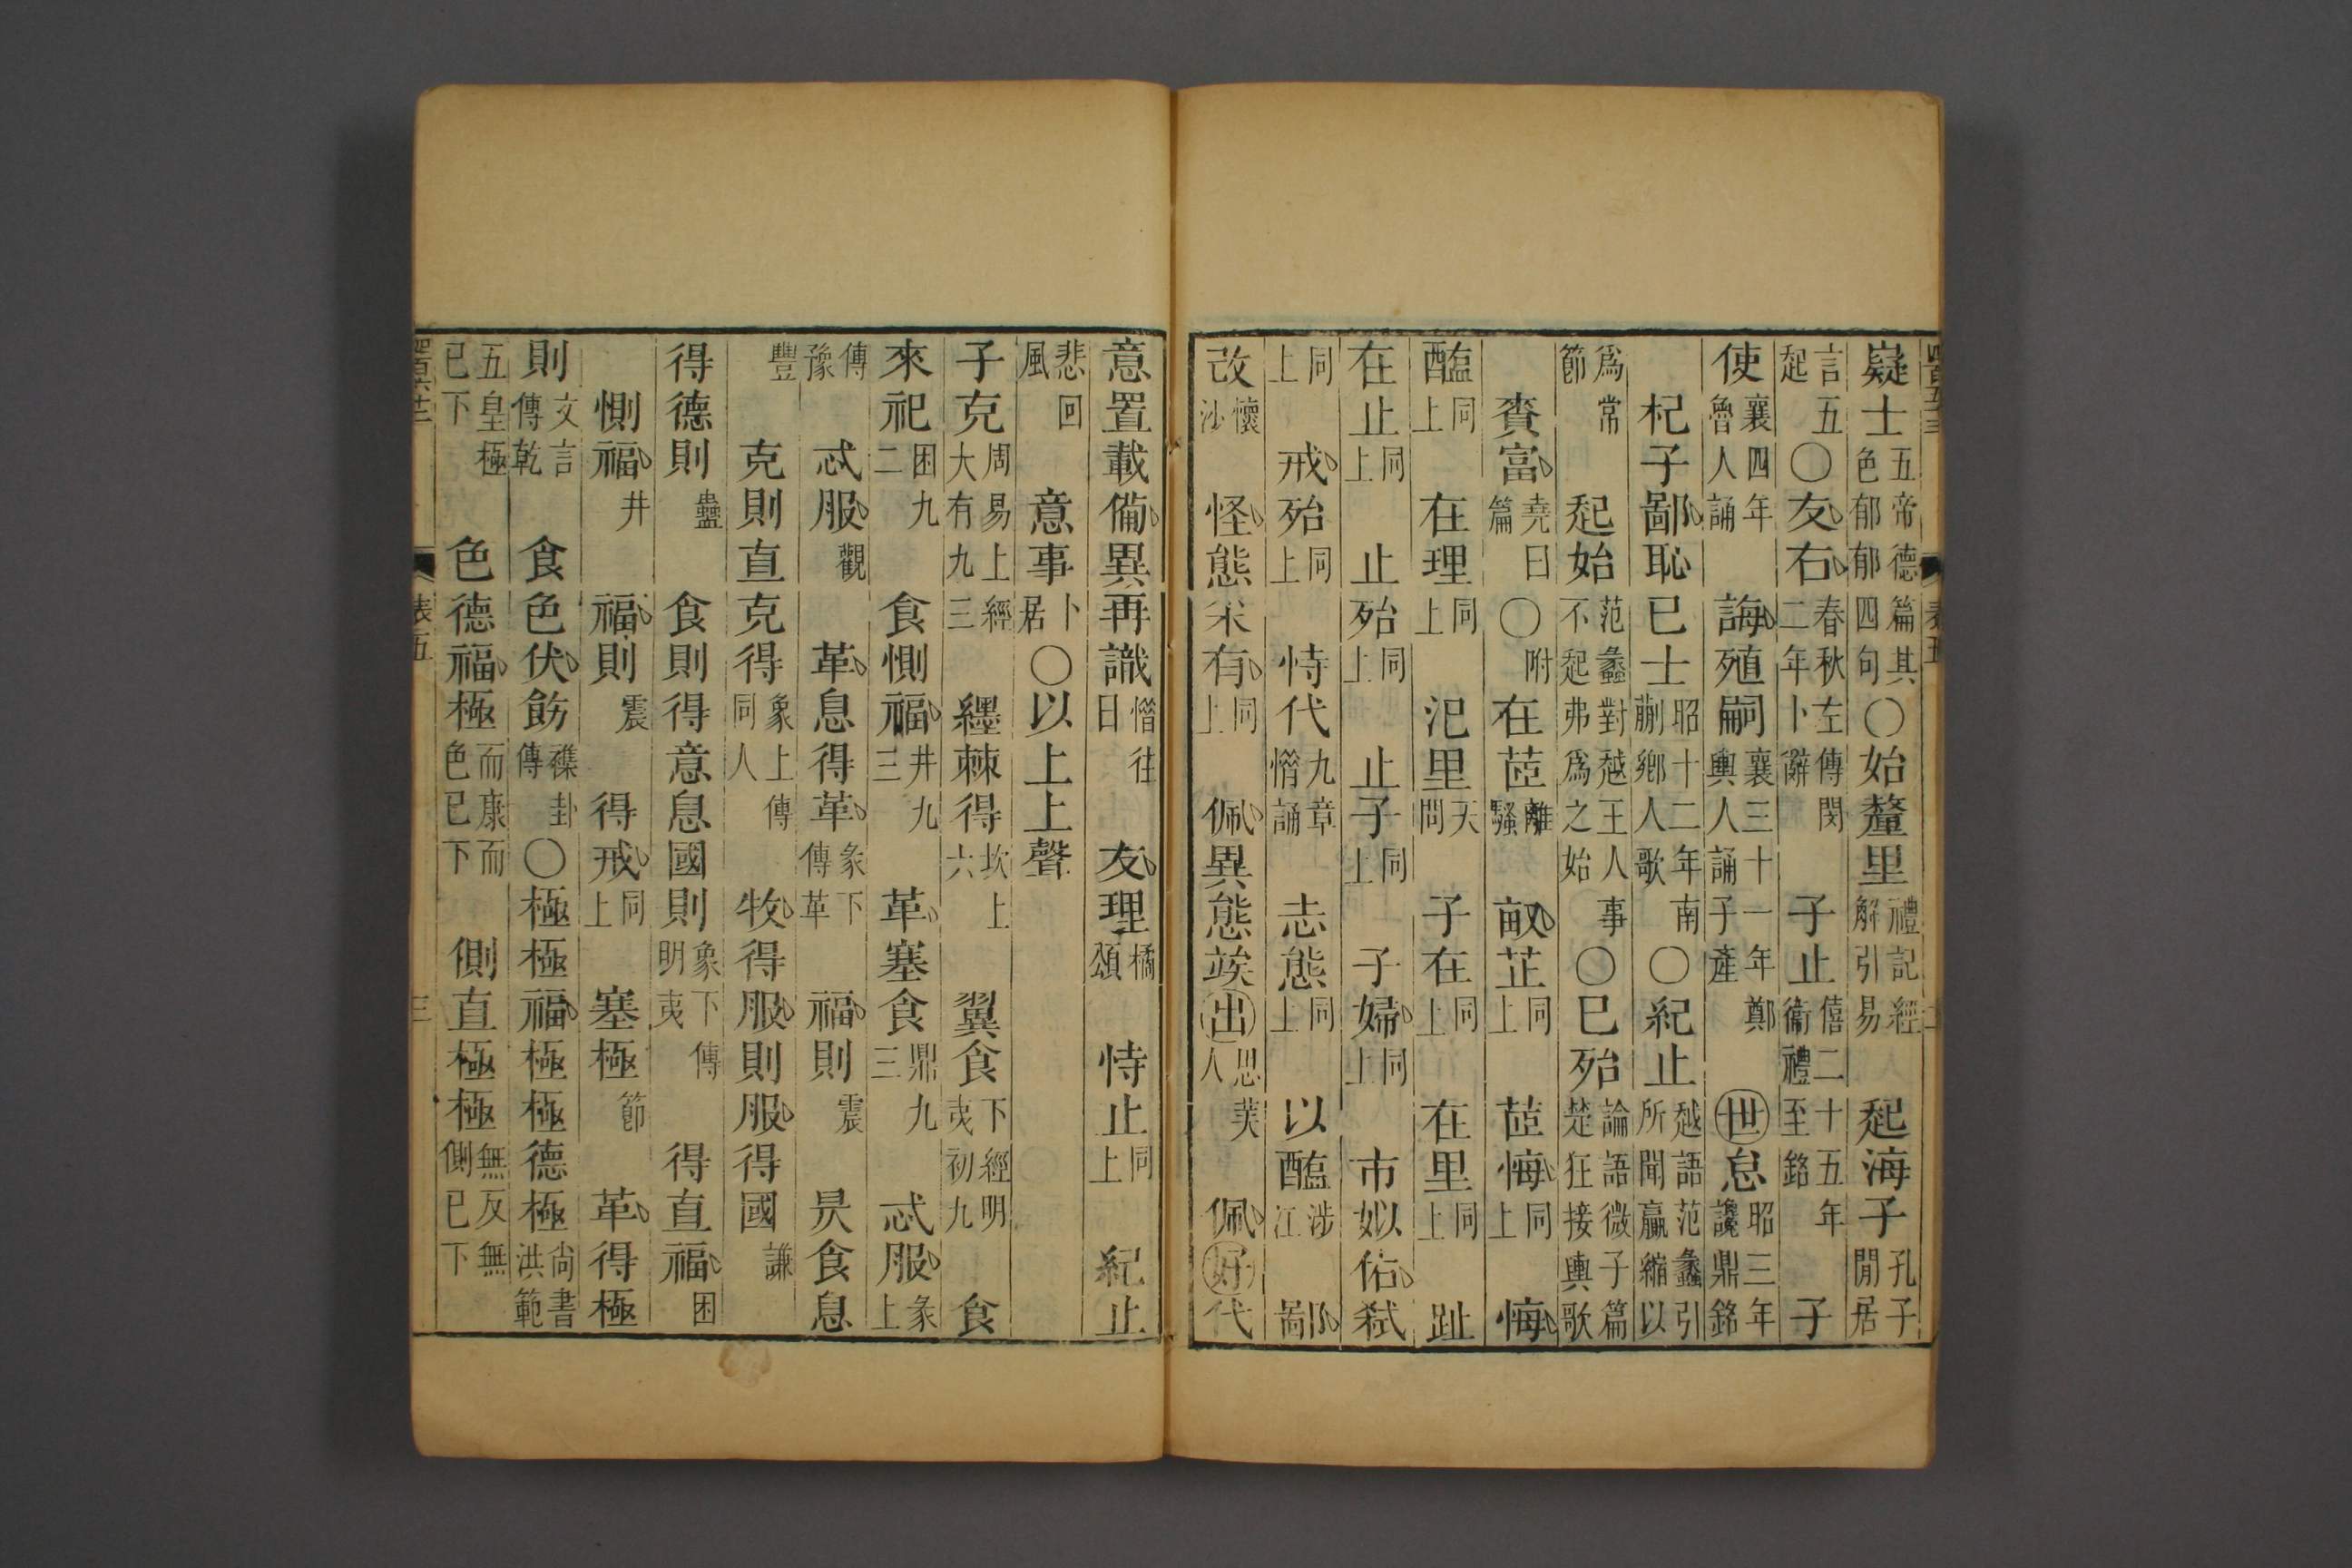 嶷士五帝德篇其色郁郁四句○始釐里禮記經解引易起海子孔子閒居
言五起○友右春秋左傳閔二年卜辭子止僖二十五年衞禮至銘子
使襄四年魯人誦誨殖嗣襄三十一年鄭輿人誦子產世怠昭三年讒鼎銘
杞子鄙恥已士昭十二年南蒯鄉人歌○紀止越語范蠡引所聞贏縮以
爲常節起始范蠡對越王人事不起弗爲之始○已殆論語微子篇楚狂接輿歌
賚富堯曰篇○附在茝離騷畝芷同上茝悔同上悔
醢同上在理同上汜里天問子在同上在里同上趾
在止同上止殆同上止子同上子婦同上市姒佑弒
同上戒殆同上恃代九章惜誦志態同上以醢涉江鄙
改懷沙怪態采有同上佩異態竢出思美人佩好代
意置載備異再識惜往日友理橘頌恃止同上紀止
悲回風意事卜居○以上上聲
子克周易上經大有九三纆棘得坎上六翼食下經明夷初九食
來祀困九二食惻福井九三革塞食鼎九三忒服彖上
傳豫忒服觀革息得革彖下傳革福則震昃食息
豐克則直克得象上傳同人牧得服則服得國謙
得德則蠱食則得意息國則象下傳明夷得直福困
惻福井福則震得戒同上塞極節革得極
則文言傳乾食色伏飭襍卦傳○極極福極極德極尚書洪範
五皇極已下色德福極而康而色已下側直極極無反無側已下